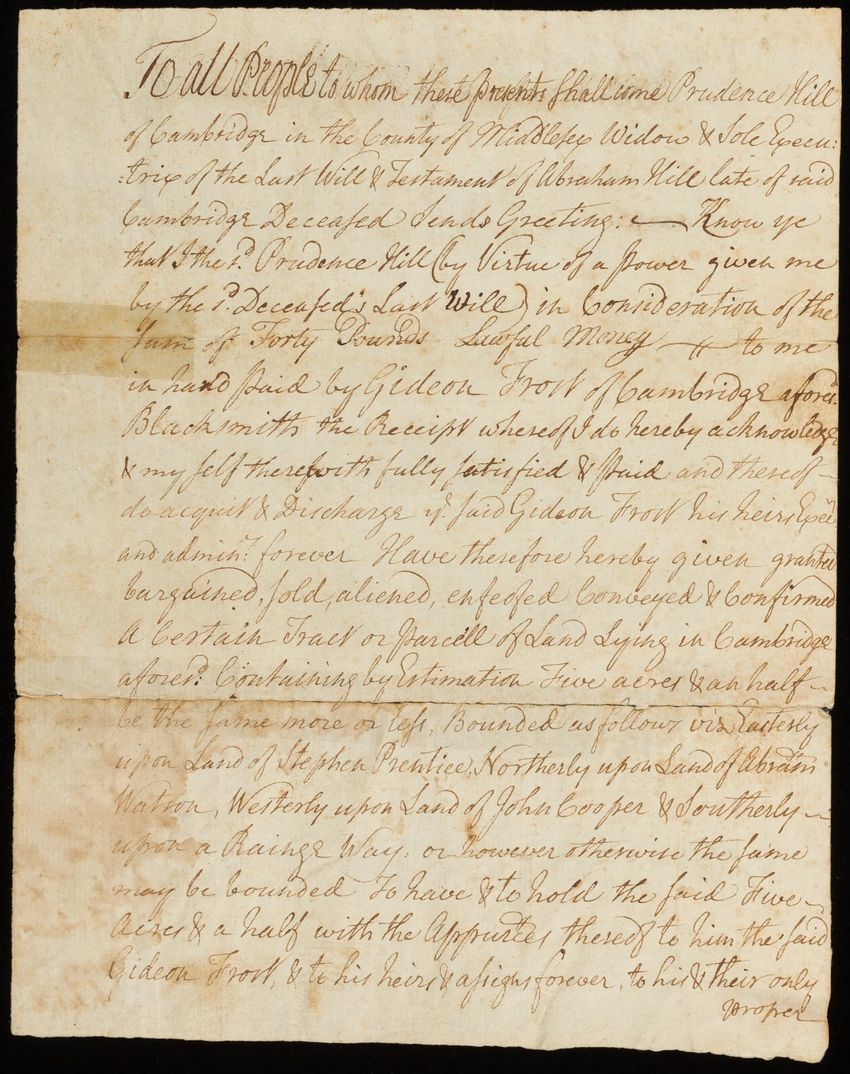 To all People to whom these presents shall come Prudence Hill
of Cambridge in the County of Middlesex Widow & Sole Execu:
:trix of the Last Will & Testament of Abraham Hill late of said
Cambridge Deceased Sends Greeting: — Know ye
that I the sd. Prudence Hill (by Virtue of a power given me
by the sd. Deceased's Last Will) in Consideration of the
sum of Forty Pounds Lawful Money — to me
in hand paid by Gideon Frost of Cambridge aforesd.
Blacksmith the Receipt whereof I do hereby acknowledge
& my self therewith fully satisfied & paid and thereof —
do acquit & Discharge ye. said Gideon Frost his heirs Execrs
and adminrs. forever Have therefore hereby given granted
bargained, sold, aliened, enfeofed Conveyed & Confirmed
A Certain Tract or parcell of Land Lying in Cambridge
aforesd. Containing by Estimation Five acres & an half —
be the same more or less, Bounded as follows viz Easterly
upon Land of Stephen Prentice, Northerly upon Land of Abram
Watson, Westerly upon Land of John Cooper & Southerly —
upon a Rainge Way. or however otherwise the same
may be bounded To have & to hold the said Five —
Acres & a half with the Appurtces thereof to him the said
Gideon Frost, & to his heirs & assigns forever, to his & their only
proper